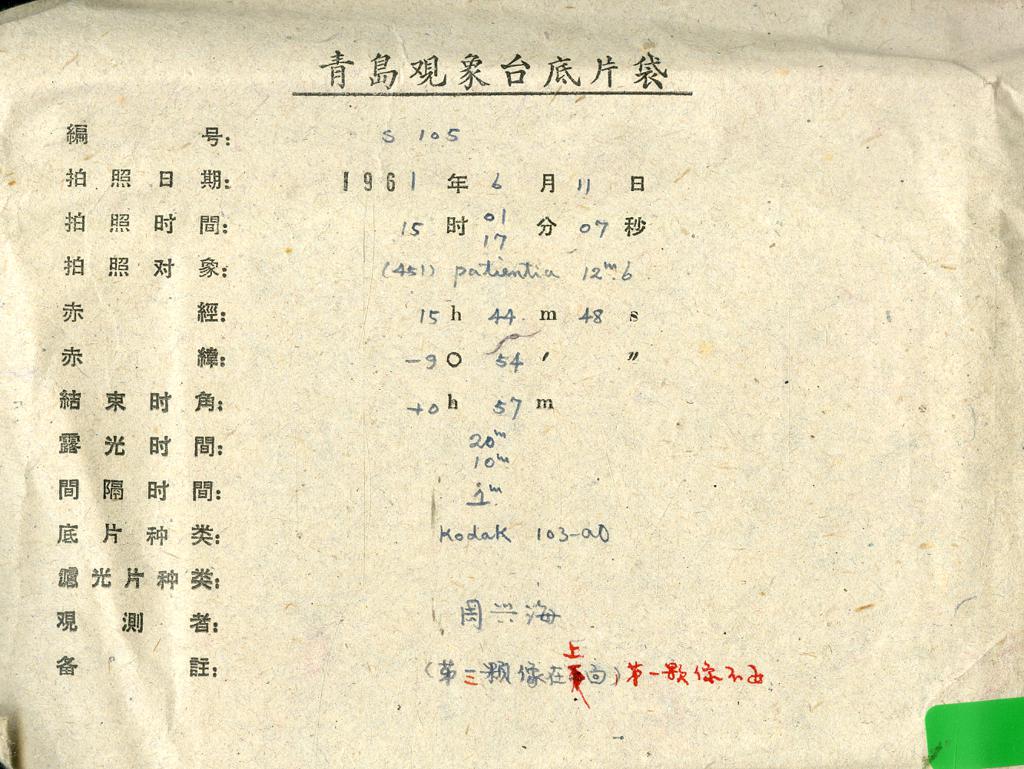 青島观象台底片袋
編号: S 105
拍照日期: 1961年6月11日
拍照时間: 15时01分07秒
17
拍照对象: (451) patientia 12ᵐ.6
赤經: 15h 44m 48s
赤緯: -9° 54′ ″
結束时角: +0h 57m
露光时間: 20ᵐ
10ᵐ
間隔时間: 1ᵐ
底片种类: Kodak 103-aO
濾光片种类:
观測者: 周兴海
备註: (第三颗像在上向) 第一颗像不